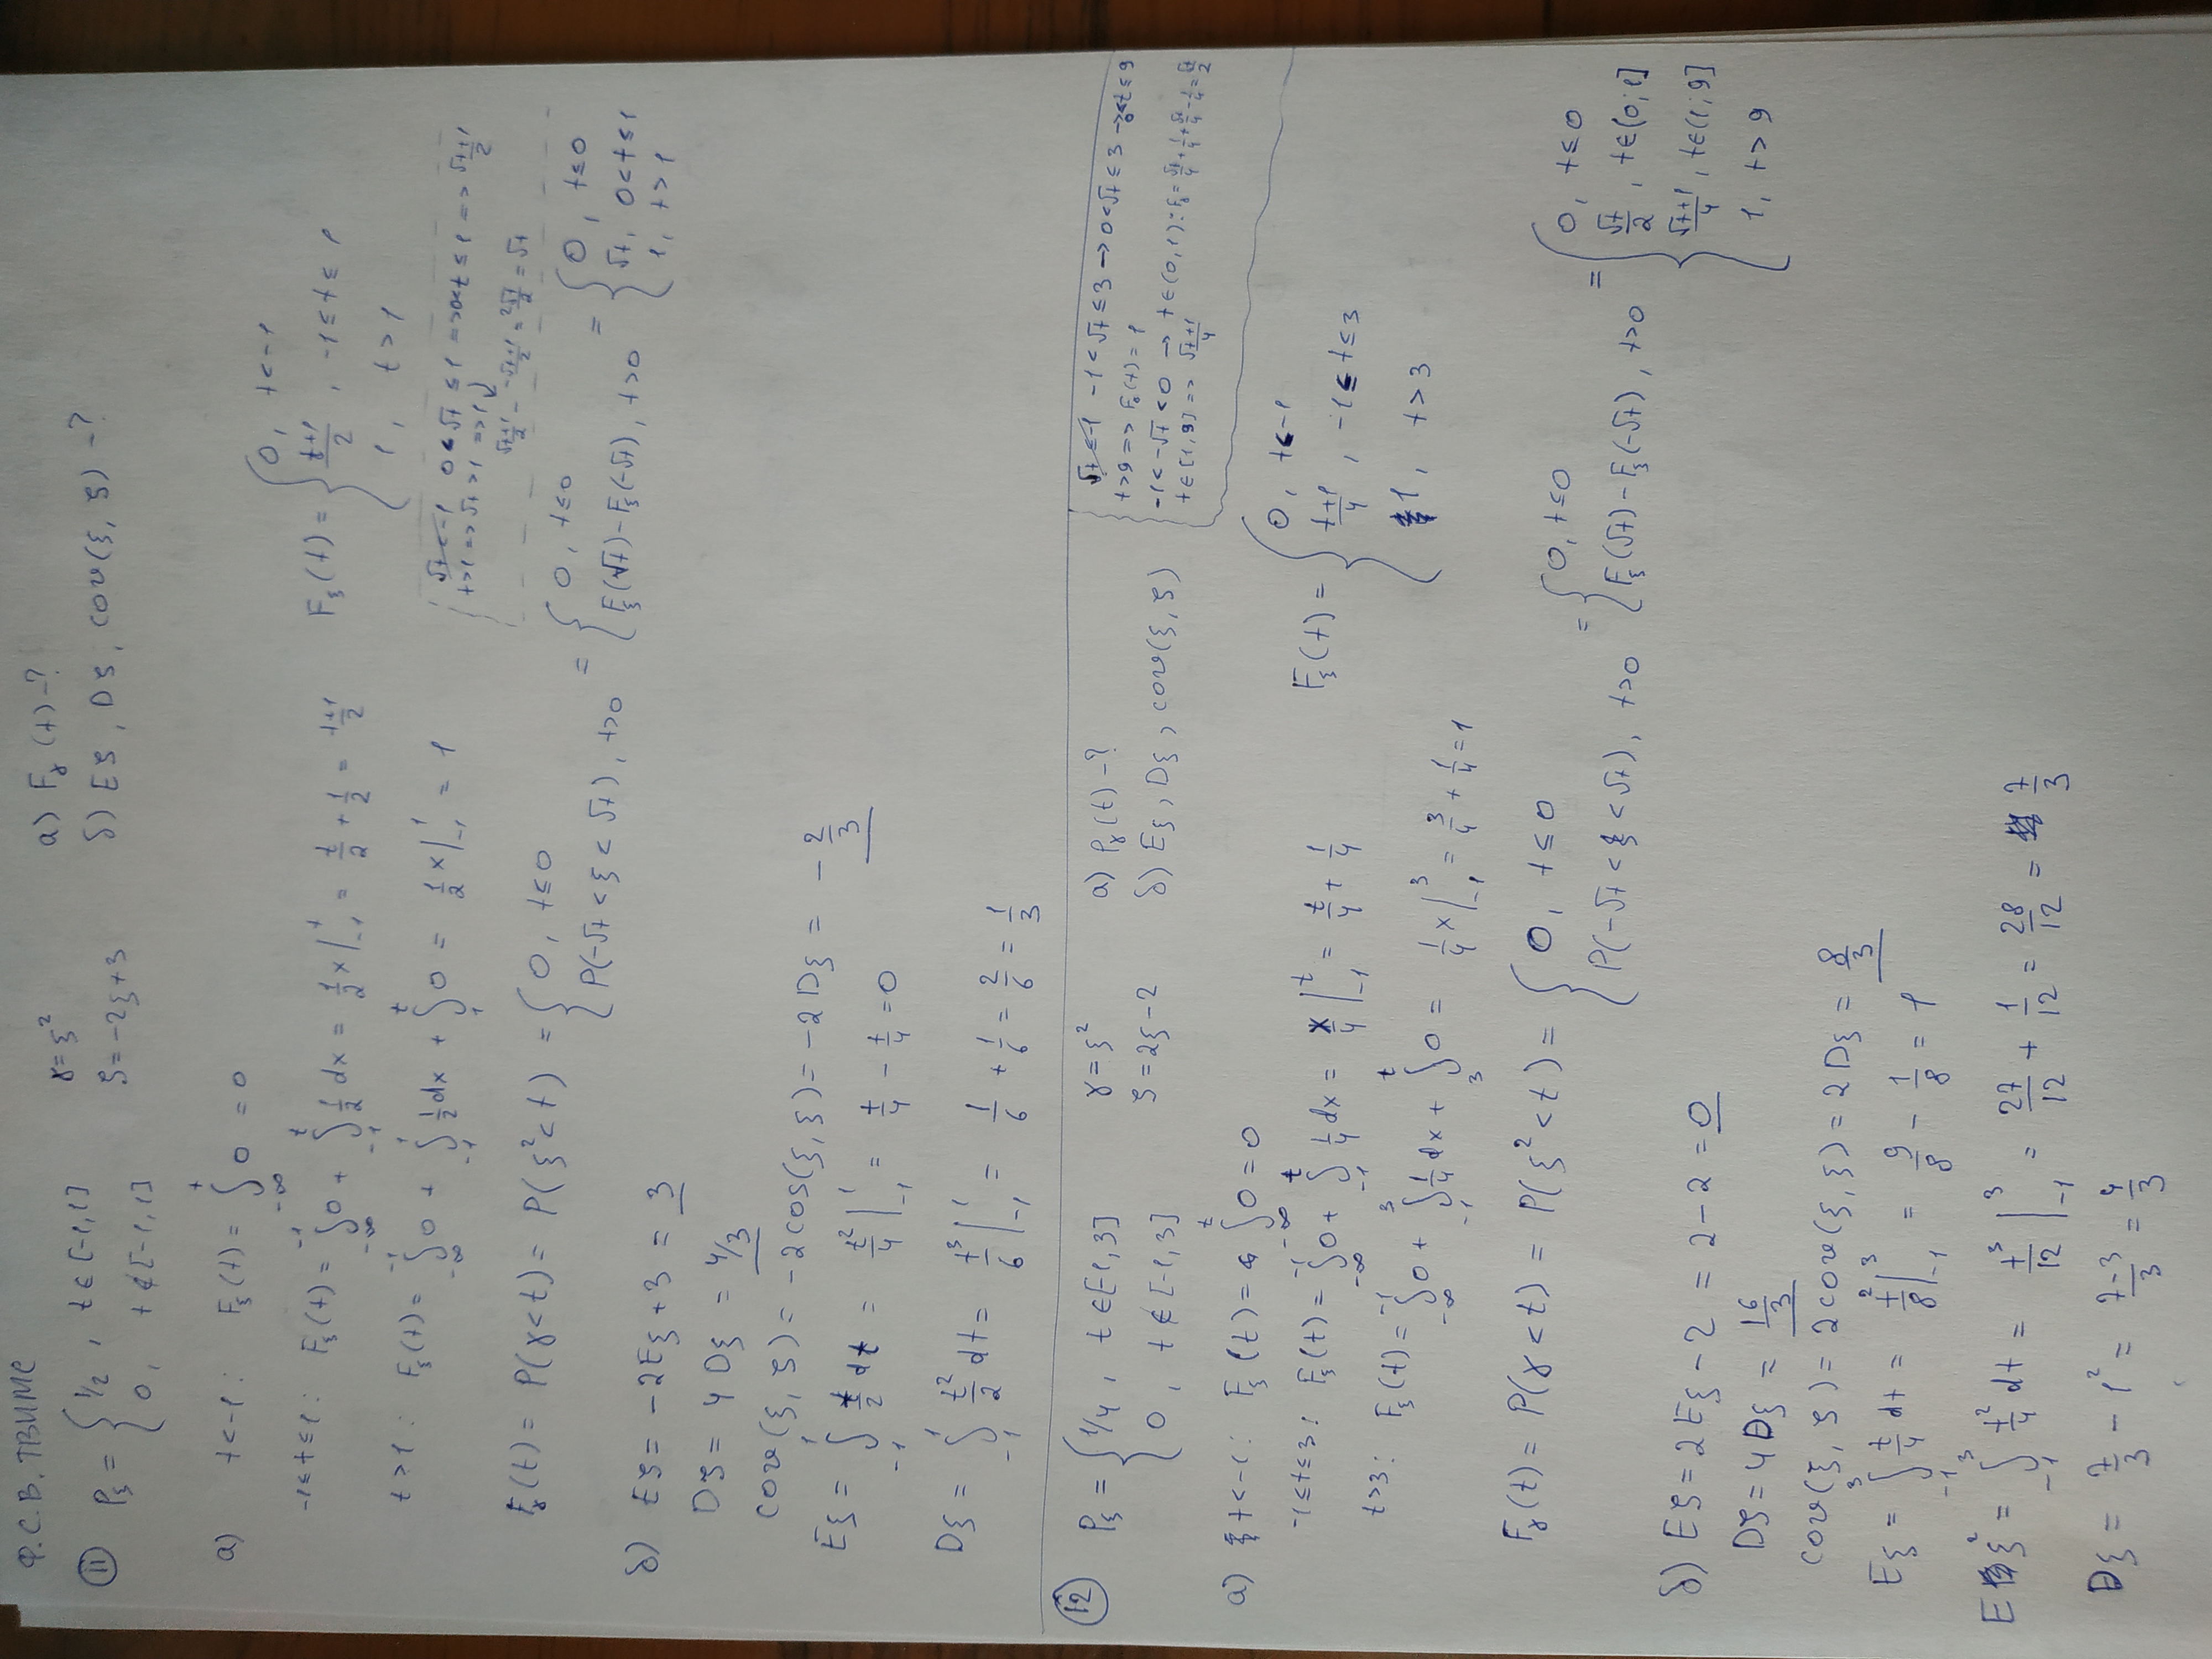 Ф.С.В. ТВИМС
11 P_ξ = { 1/2, t ∈ [-1,1]
0, t ∉ [-1,1]
γ = ξ²
ζ = -2ξ+3
а) F_γ(t) - ?
б) Eζ, Dζ, cov(ξ, ζ) - ?
а) t < -1: F_ξ(t) = ∫_{-∞}^{t} 0 = 0
-1 ≤ t ≤ 1: F_ξ(t) = ∫_{-∞}^{-1} 0 + ∫_{-1}^{t} 1/2 dx = 1/2 x |_{-1}^{t} = t/2 + 1/2 = (t+1)/2
t > 1: F_ξ(t) = ∫_{-∞}^{-1} 0 + ∫_{-1}^{1} 1/2 dx + ∫_{1}^{t} 0 = 1/2 x |_{-1}^{1} = 1
F_ξ(t) = { 0, t < -1
(t+1)/2, -1 ≤ t ≤ 1
1, t > 1
√t < -1 0 < √t ≤ 1 => 0 < t ≤ 1 => (√t+1)/2
t > 1 => √t > 1 => 1
(√t+1)/2 - (-√t+1)/2 = 2√t/2 = √t
F_γ(t) = P(γ < t) = P(ξ² < t) = { 0, t ≤ 0
P(-√t < ξ < √t), t > 0
= { 0, t ≤ 0
F_ξ(√t) - F_ξ(-√t), t > 0
= { 0, t ≤ 0
√t, 0 < t ≤ 1
1, t > 1
б) Eζ = -2Eξ + 3 = 3
Dζ = 4Dξ = 4/3
cov(ξ, ζ) = -2cos(ξ, ξ) = -2Dξ = -2/3
Eξ = ∫_{-1}^{1} t/2 dt = t²/4 |_{-1}^{1} = t/4 - t/4 = 0
Dξ = ∫_{-1}^{1} t²/2 dt = t³/6 |_{-1}^{1} = 1/6 + 1/6 = 2/6 = 1/3
12 P_ξ = { 1/4, t ∈ [-1, 3]
0, t ∉ [-1, 3]
γ = ξ²
ζ = 2ξ - 2
а) P_γ(t) - ?
б) Eξ, Dξ, cov(ξ, ζ)
√t ≤ -1 -1 < √t ≤ 3 → 0 < √t ≤ 3 → 0 < t ≤ 9
t > 9 => F_γ(t) = 1
-1 < -√t < 0 → t ∈ (0, 1): F_γ = √t/4 + 1/4 + √t/4 - 1/4 = √t/2
t ∈ [1, 9] => (√t+1)/4
а) t < -1: F_ξ(t) = ∫_{-∞}^{t} 0 = 0
-1 ≤ t ≤ 3: F_ξ(t) = ∫_{-∞}^{-1} 0 + ∫_{-1}^{t} 1/4 dx = x/4 |_{-1}^{t} = t/4 + 1/4
t > 3: F_ξ(t) = ∫_{-∞}^{-1} 0 + ∫_{-1}^{3} 1/4 dx + ∫_{3}^{t} 0 = 1/4 x |_{-1}^{3} = 3/4 + 1/4 = 1
F_ξ(t) = { 0, t < -1
(t+1)/4, -1 ≤ t ≤ 3
1, t > 3
F_γ(t) = P(γ < t) = P(ξ² < t) = { 0, t ≤ 0
P(-√t < ξ < √t), t > 0
= { 0, t ≤ 0
F_ξ(√t) - F_ξ(-√t), t > 0
= { 0, t ≤ 0
√t/2, t ∈ (0; 1]
(√t+1)/4, t ∈ (1; 9]
1, t > 9
б) Eζ = 2Eξ - 2 = 2 - 2 = 0
Dζ = 4Dξ = 16/3
cov(ξ, ζ) = 2cov(ξ, ξ) = 2Dξ = 8/3
Eξ = ∫_{-1}^{3} t/4 dt = t²/8 |_{-1}^{3} = 9/8 - 1/8 = 1
Eξ² = ∫_{-1}^{3} t²/4 dt = t³/12 |_{-1}^{3} = 27/12 + 1/12 = 28/12 = 7/3
Dξ = 7/3 - 1² = (7-3)/3 = 4/3